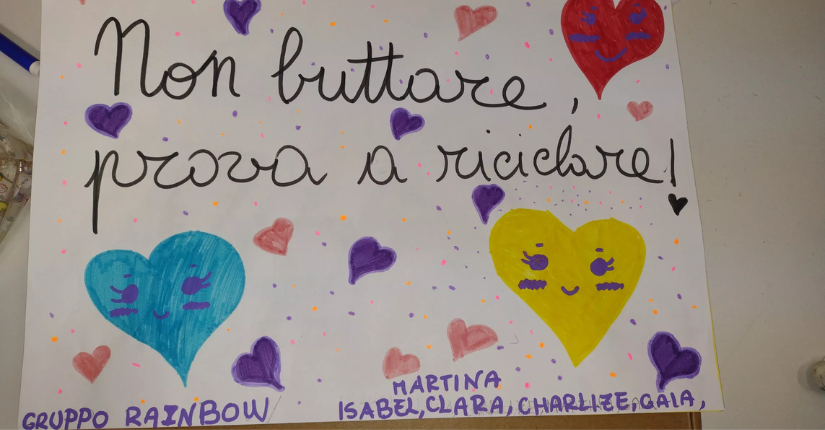 Non buttare,
prova a riciclare!
MARTINA
GRUPPO RAINBOW ISABEL, CLARA, CHARLIZE, GAIA,